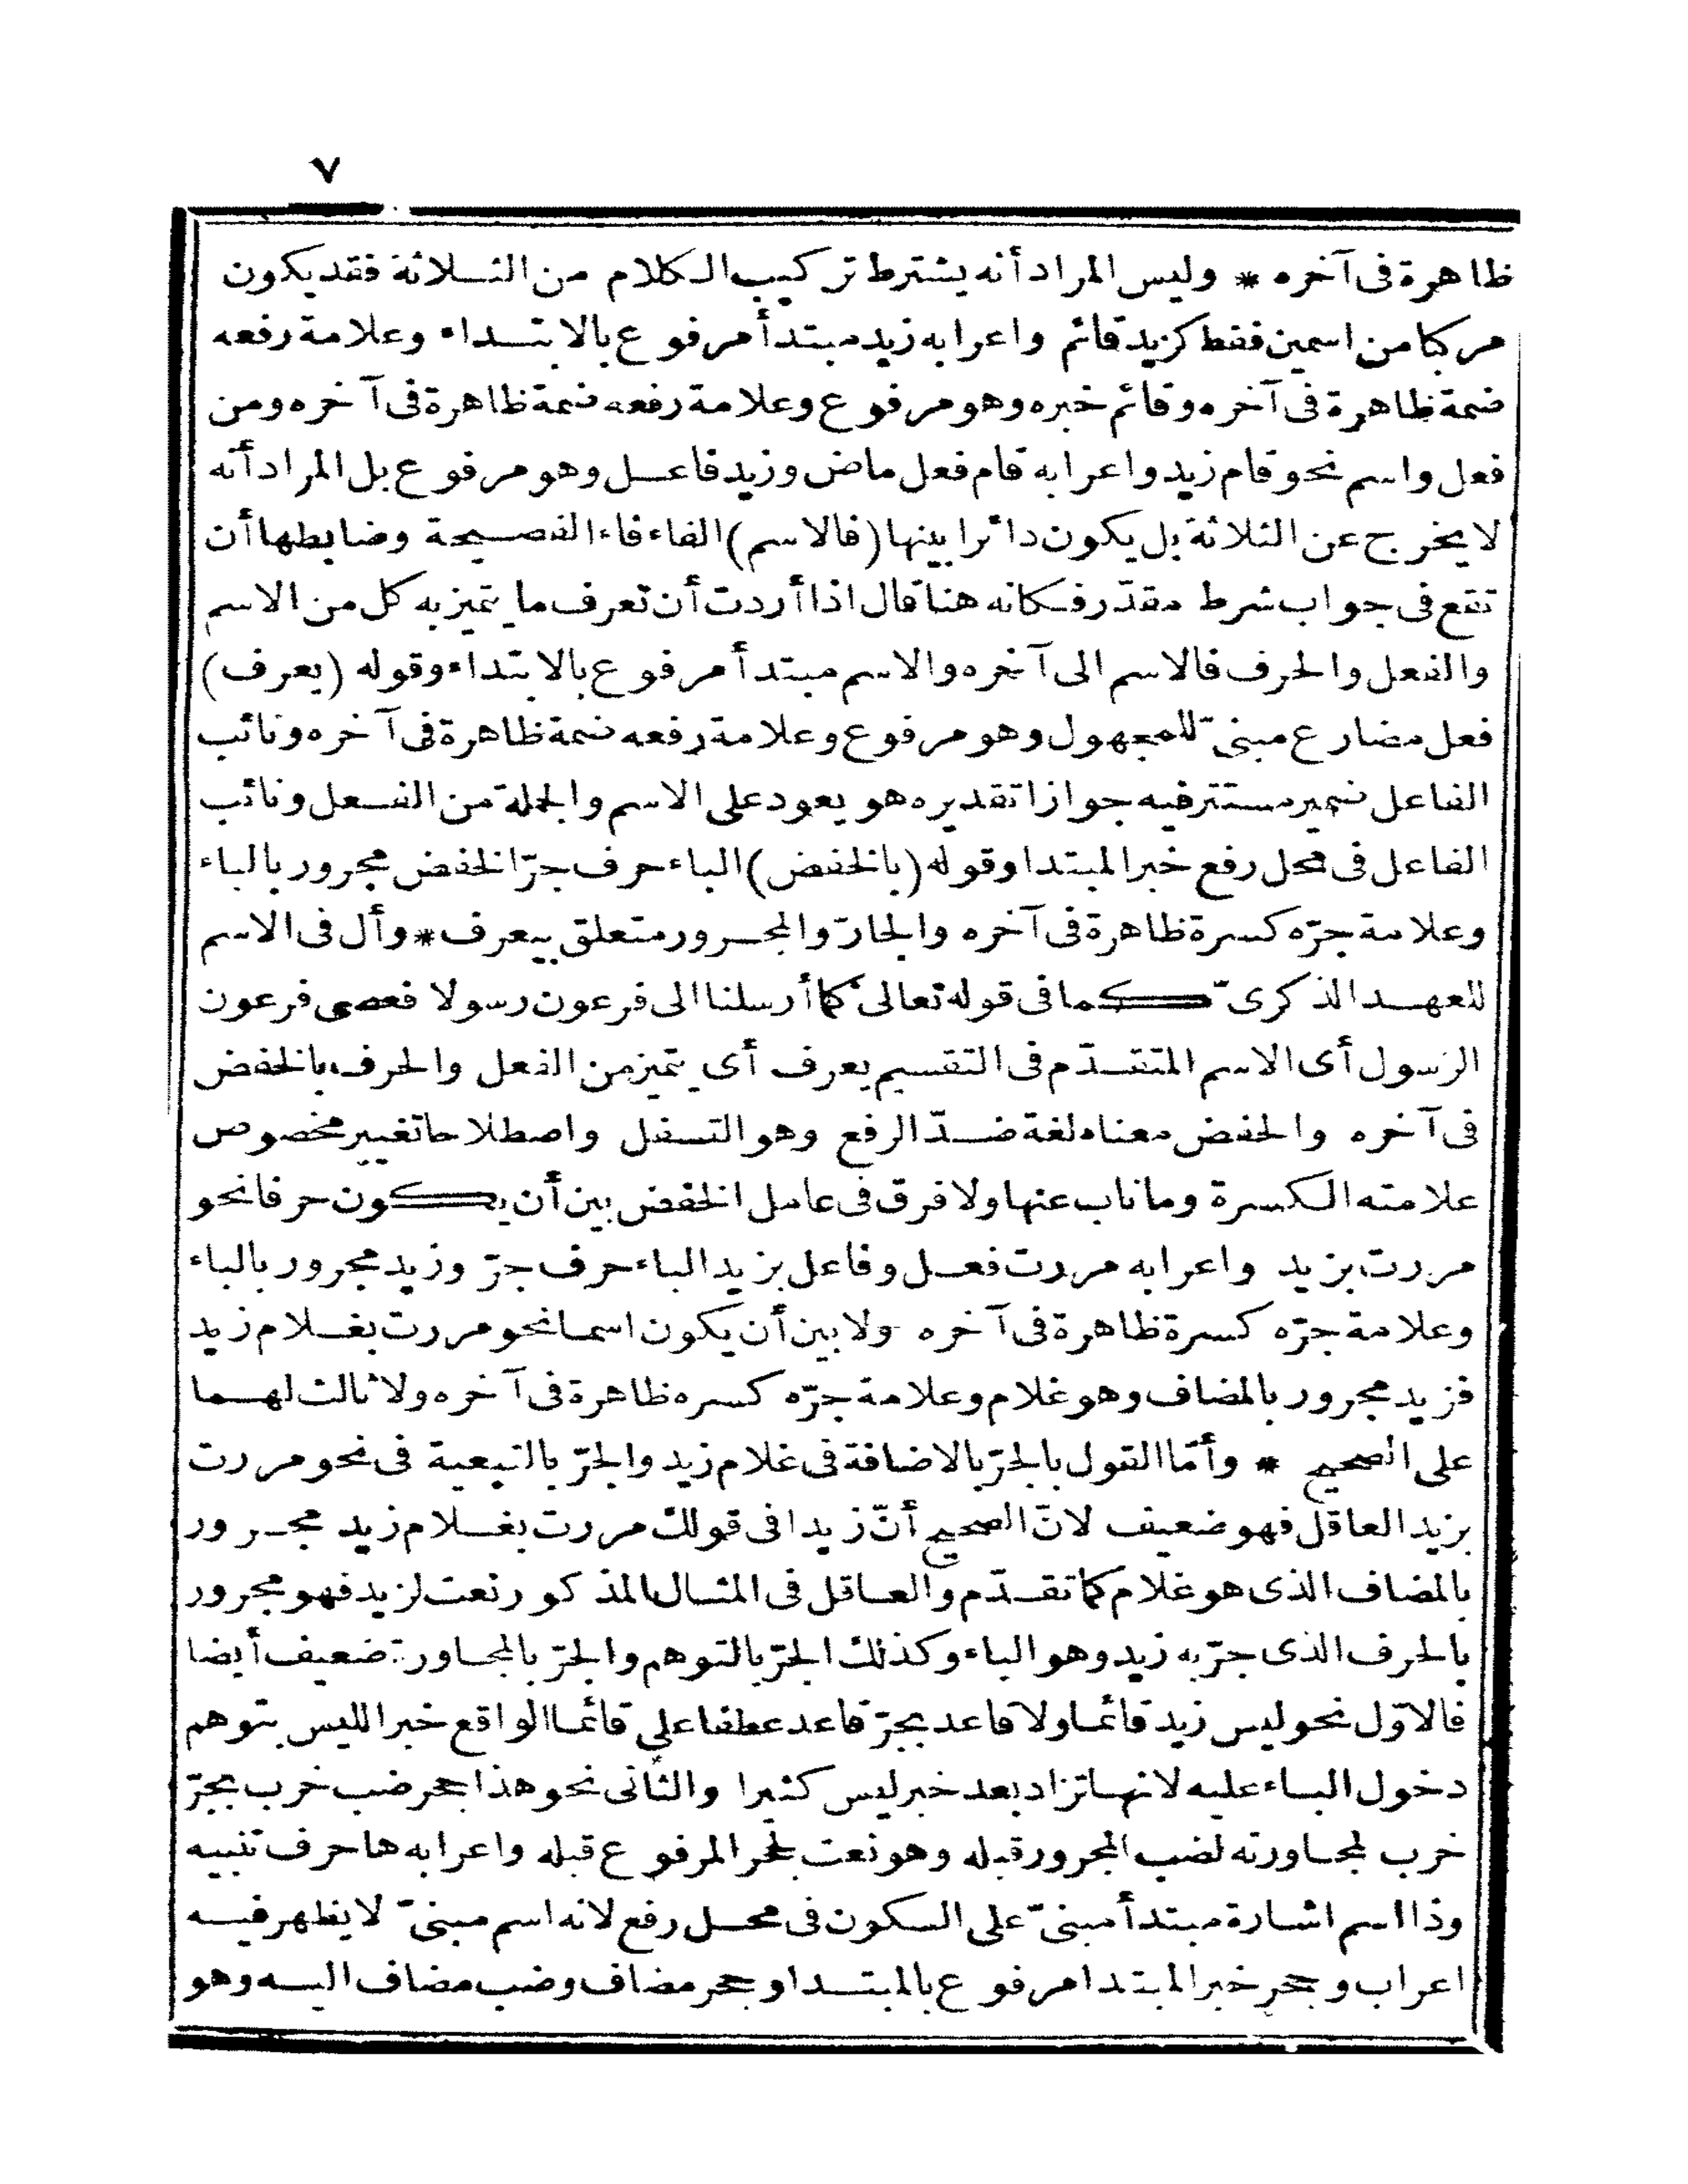 ٧
ظاهرة فى آخره * وليس المراد أنه يشترط تركيب الكلام من الثلاثة فقد يكون
مركبا من اسمين فقط كزيد قائم واعرابه زيد مبتدأ مرفوع بالابتداء وعلامة رفعه
ضمة ظاهرة فى آخره وقائم خبره وهو مرفوع وعلامة رفعه ضمة ظاهرة فى آخره ومن
فعل واسم نحو قام زيد واعرابه قام فعل ماض وزيد فاعل وهو مرفوع بل المراد أنه
لا يخرج عن الثلاثة بل يكون دائرا بينها (فالاسم) الفاء فاء الفصيحة وضابطها أن
تقع فى جواب شرط مقدّر فكانه هنا قال اذا أردت أن تعرف ما يتميز به كل من الاسم
والفعل والحرف فالاسم الى آخره والاسم مبتدأ مرفوع بالابتداء وقوله (يعرف)
فعل مضارع مبنىّ للمجهول وهو مرفوع وعلامة رفعه ضمة ظاهرة فى آخره ونائب
الفاعل ضمير مستتر فيه جوازا تقديره هو يعود على الاسم والجملة من الفعل ونائب
الفاعل فى محل رفع خبر المبتدا وقوله (بالخفض) الباء حرف جرّ الخفض مجرور بالباء
وعلامة جرّه كسرة ظاهرة فى آخره والجارّ والمجرور متعلق بيعرف * وأل فى الاسم
للعهد الذكرىّ كما فى قوله تعالى كما أرسلنا الى فرعون رسولا فعصى فرعون
الرسول أى الاسم المتقدّم فى التقسيم يعرف أى يتميز من الفعل والحرف بالخفض
فى آخره والخفض معناه لغة ضدّ الرفع وهو التسفل واصطلاحا تغيير مخصوص
علامته الكسرة وما ناب عنها ولا فرق فى عامل الخفض بين أن يكون حرفا نحو
مررت بزيد واعرابه مررت فعل وفاعل بزيد الباء حرف جرّ وزيد مجرور بالباء
وعلامة جرّه كسرة ظاهرة فى آخره ولا بين أن يكون اسما نحو مررت بغلام زيد
فزيد مجرور بالمضاف وهو غلام وعلامة جرّه كسره ظاهرة فى آخره ولا ثالث لهما
على الصحيح * وأمّا القول بالجرّ بالاضافة فى غلام زيد والجرّ بالتبعية فى نحو مررت
بزيد العاقل فهو ضعيف لانّ الصحيح أنّ زيدا فى قولك مررت بغلام زيد مجرور
بالمضاف الذى هو غلام كما تقدّم والعاقل فى المثال المذكور نعت لزيد فهو مجرور
بالحرف الذى جرّ به زيد وهو الباء وكذلك الجرّ بالتوهم والجرّ بالمجاورة ضعيف أيضا
فالاوّل نحو ليس زيد قائما ولا قاعد بجرّ قاعد عطفا على قائما الواقع خبرا لليس بتوهم
دخول الباء عليه لانها تزاد بعد خبر ليس كثيرا والثانى نحو هذا جحر ضب خرب بجرّ
خرب لمجاورته لضب المجرور قبله وهو نعت لجحر المرفوع قبله واعرابه ها حرف تنبيه
وذا اسم اشارة مبتدأ مبنىّ على السكون فى محل رفع لانه اسم مبنىّ لا يظهر فيه
اعراب وجحر خبر المبتدا مرفوع بالمبتدا وجحر مضاف وضب مضاف اليه وهو